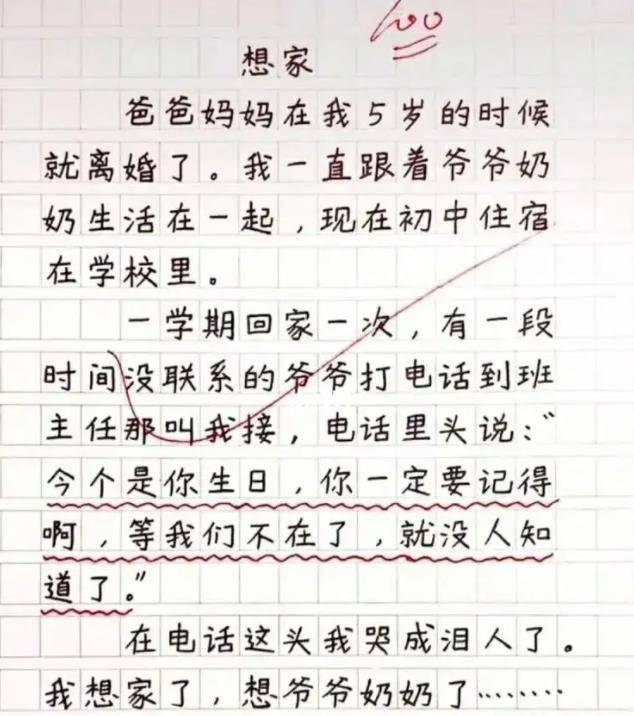 100
想家
爸爸妈妈在我5岁的时候
就离婚了。我一直跟着爷爷奶
奶生活在一起，现在初中住宿
在学校里。
一学期回家一次，有一段
时间没联系的爷爷打电话到班
主任那叫我接，电话里头说：“
今个是你生日，你一定要记得
啊，等我们不在了，就没人知
道了。”
在电话这头我哭成泪人了。
我想家了，想爷爷奶奶了………